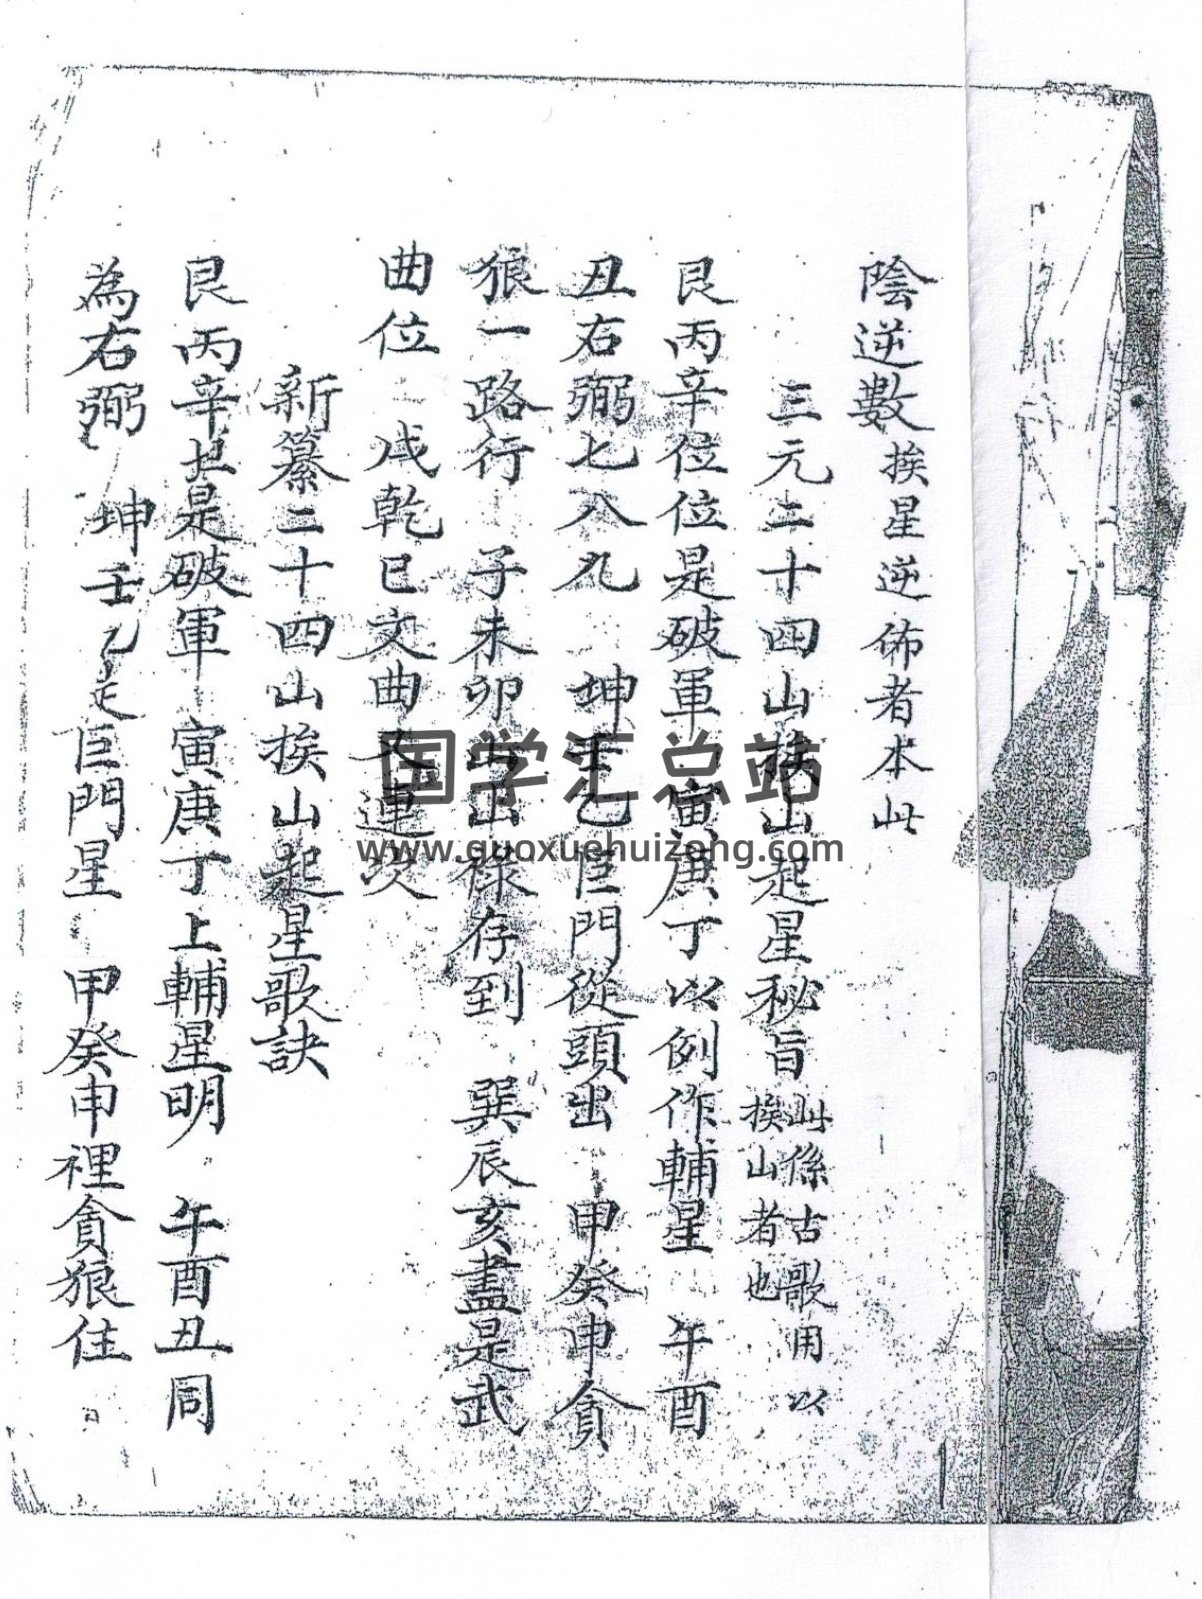 陰逆數挨星逆佈者本此
三元二十四山挨山起星秘旨此係古歌用以挨山者也
艮丙辛位位是破軍 寅庚丁以例作輔星 午酉
丑右弼七八九 坤壬乙巨門從頭出 甲癸申貪
狼一路行 子未卯 出祿存到 巽辰亥盡是武
曲位 戌乾巳文曲 連次
新纂二十四山挨山起星歌訣
艮丙辛 是破軍 寅庚丁上輔星明 午酉丑同
為右弼 坤壬乙 巨門星 甲癸申裡貪狼住
国学汇总站
www.guoxuehuizong.com